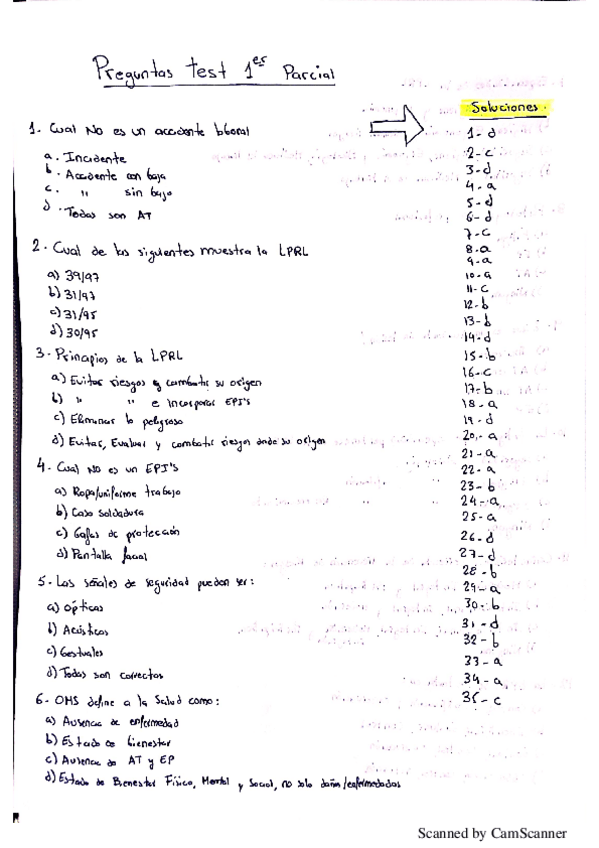 Preguntas test 1er Parcial
Soluciones.
1. Cual No es un accidente laboral
a. Incidente
b. Accidente con baja
c. " sin baja
d. Todas son AT
2. Cual de los siguientes muestra la LPRL
a) 39/97
b) 31/97
c) 31/95
d) 30/95
3. Principios de la LPRL
a) Evitar riesgos y combatir su origen
b) " " e incorporar EPI's
c) Eliminar lo peligroso
d) Evitar, Evaluar y combatir riesgos desde su origen
4. Cual No es un EPI's
a) Ropa/uniforme trabajo
b) Casco Soldadura
c) Gafas de protección
d) Pantalla facial
5. Las señales de seguridad pueden ser:
a) ópticas
b) Acústicas
c) Gestuales
d) Todas son correctas
6. OMS define a la Salud como:
a) Ausencia de enfermedad
b) Estado de bienestar
c) Ausencia de AT y EP
d) Estado de Bienestar Físico, Mental y Social, no solo daños/enfermedades
1-d
2-c
3-d
4-a
5-d
6-d
7-c
8-a
9-a
10-a
11-c
12-b
13-b
14-d
15-b
16-c
17-b
18-a
19-d
20-a
21-a
22-a
23-b
24-a
25-a
26-d
27-d
28-b
29-a
30-b
31-d
32-b
33-a
34-a
35-c
Scanned by CamScanner